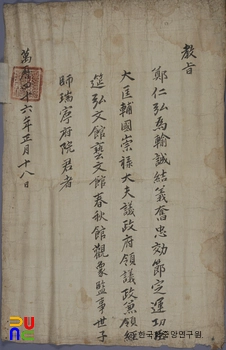 教旨
鄭仁弘爲輸誠結義奮忠効節定運功臣
大匡輔國崇祿大夫議政府領議政兼領經
筵弘文館藝文館春秋館觀象監事世子
師瑞寧府院君者
萬曆四十六年正月十八日
한국학중앙연구원